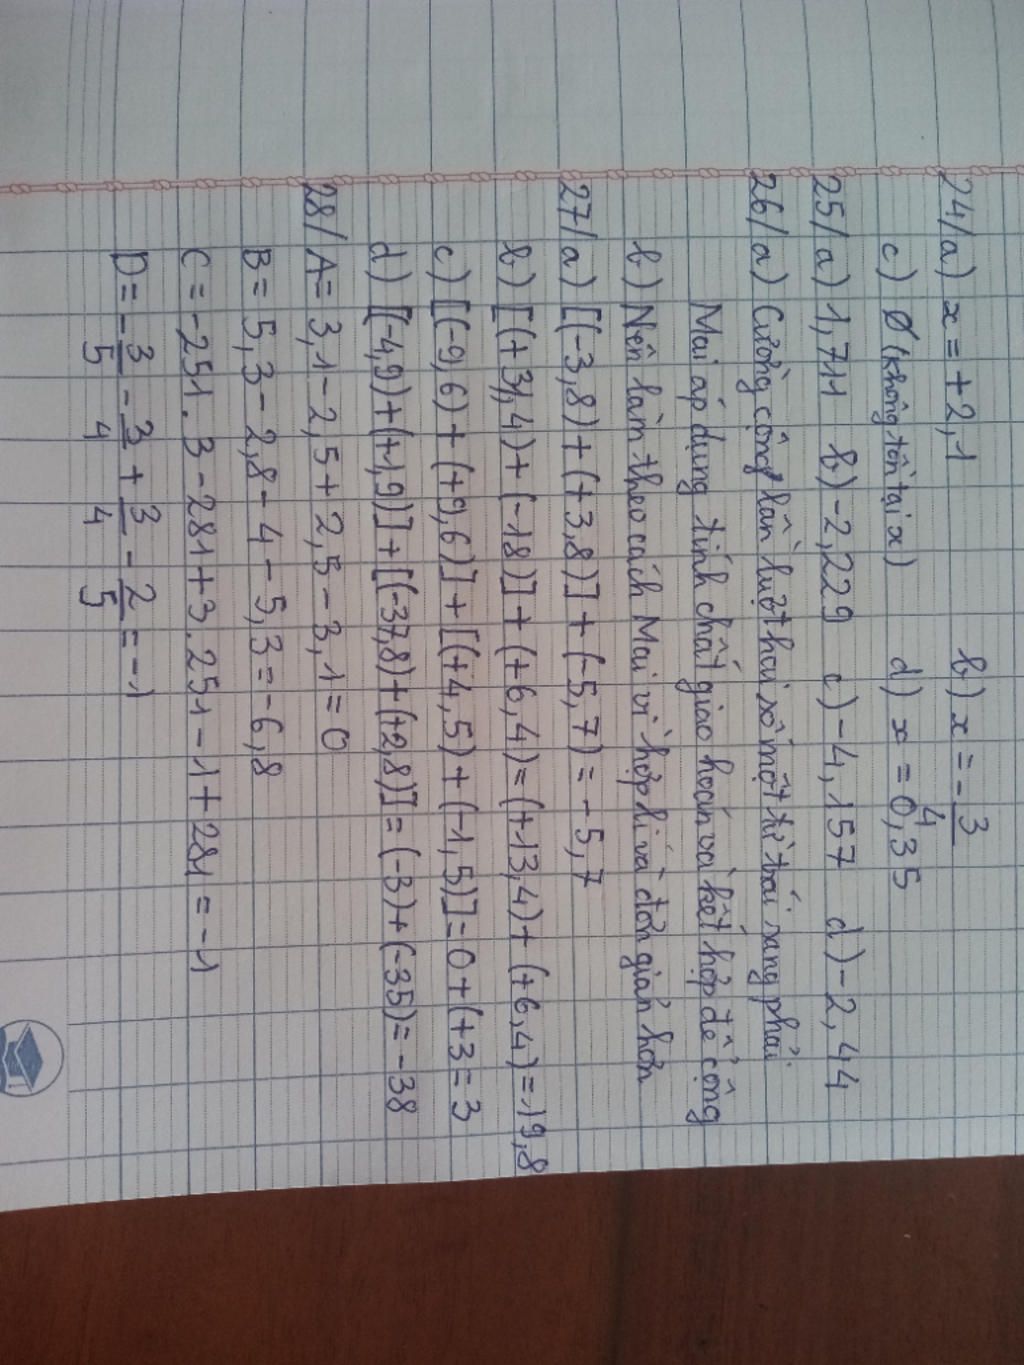 24/a) x = +2,1 b) x = -3/4
c) Ø (không tồn tại x) d) x = 0,35
25/a) 1,711 b) -2,229 c) -4,157 d) -2,44
26/a) Cường cộng lần lượt hai số một từ trái sang phải
Mai áp dụng tính chất giao hoán và kết hợp để cộng
b) Nên làm theo cách Mai vì hợp lí và đơn giản hơn
27/a) [(-3,8) + (+3,8)] + (-5,7) = -5,7
b) [(+31,4) + (-18)] + (+6,4) = (+13,4) + (+6,4) = 19,8
c) [(-9,6) + (+9,6)] + [(+4,5) + (-1,5)] = 0 + (+3 = 3
d) [(-4,9) + (+1,9)] + [(-37,8) + (+2,8)] = (-3) + (-35) = -38
28/ A = 3,1 - 2,5 + 2,5 - 3,1 = 0
B = 5,3 - 2,8 - 4 - 5,3 = -6,8
C = -251.3 - 281 + 3.251 - 1 + 281 = -1
D = -3/5 - 3/4 + 3/4 - 2/5 = -1